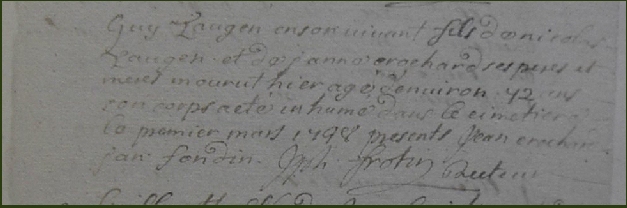 Guy Laugen enson vivant fils de nicolas
Laugen et de janne crochard ses peres et
meres mourut hier agé denviron 42 ans
son corps a eté inhumé dans le cimetiere
le premier mars 1798 presents jean crochar
jan fondin